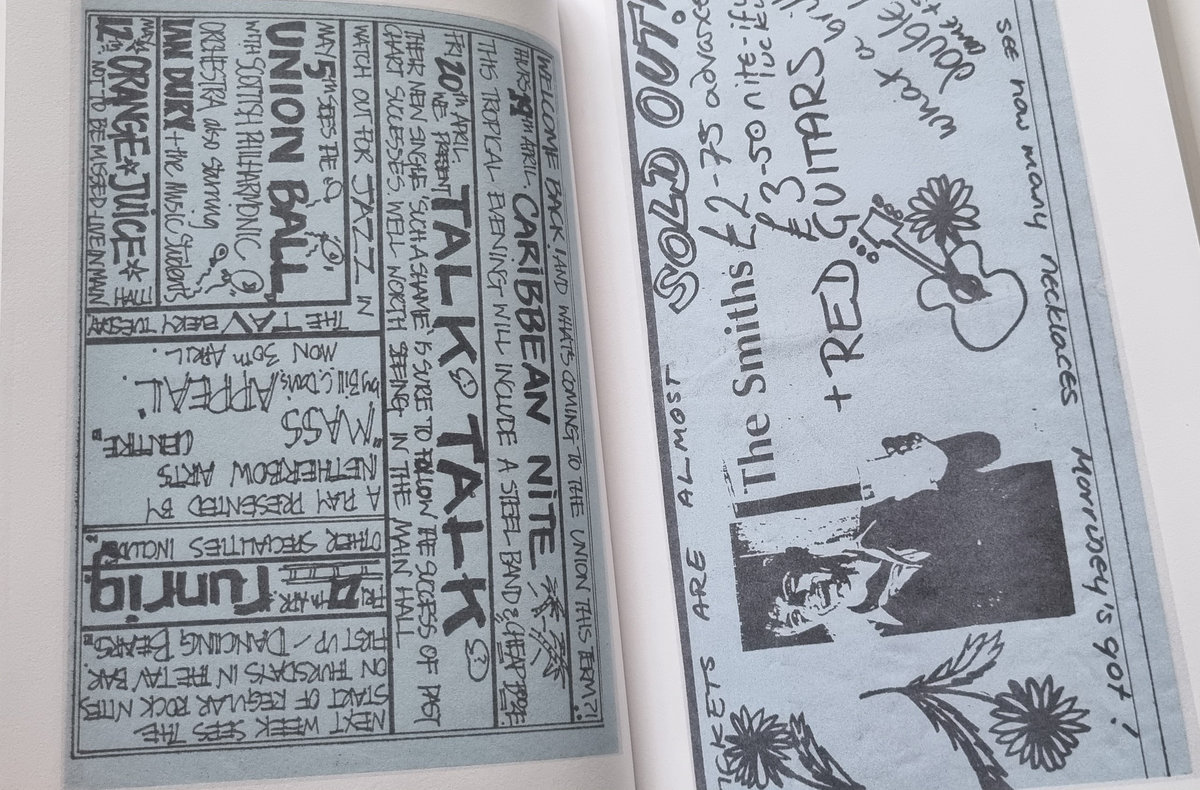 WELCOME BACK! AND WHATS COMING TO THE UNION THIS TERM?!
THURS 19th APRIL. CARIBBEAN NITE
THIS TROPICAL EVENING WILL INCLUDE A STEEL BAND & CHEAP
FRI 20th APRIL. WE PRESENT TALK TALK
THEIR NEW SINGLE 'SUCH A SHAME' IS SURE TO FOLLOW THE SUCCESS OF PAST
CHART SUCCESSES, WELL WORTH SEEING IN THE MAIN HALL
WATCH OUT FOR JAZZ IN
THE TAV EVERY TUESDAY
MAY 5th SEES THE
UNION BALL
WITH SCOTTISH PHILHARMONIC
ORCHESTRA also starring
IAN DURY + the Music Students
MAY 12th ORANGE JUICE
NOT TO BE MISSED - LIVE IN MAIN
A PLAY PRESENTED BY
NETHERBOW ARTS
CENTRE
"MASS
APPEAL"
by Bill C. Davis.
MON 30TH APRIL.
OTHER SPECIALITIES INCLUDE
FRI
runrig
NEXT WEEK SEES THE
START OF REGULAR ROCK NITES
ON THURSDAYS IN THE TAV BAR
FIRST UP / DANCING BEARS
SEE HOW MANY NECKLACES Morrissey's got!
what a
double
GUITARS
+ RED
£3-50 nite-if
lucky
£2-75 advance
The Smiths
SOLD OUT!
ICKETS ARE ALMOST